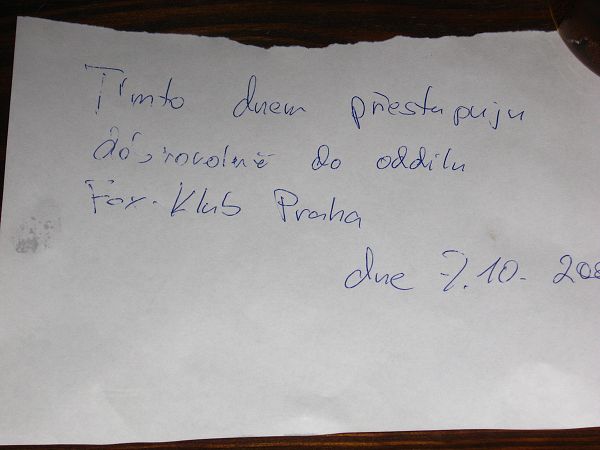 Tímto dnem přestupuju
dobrovolně do oddílu
Fox-Klub Praha
dne 7.10. 200